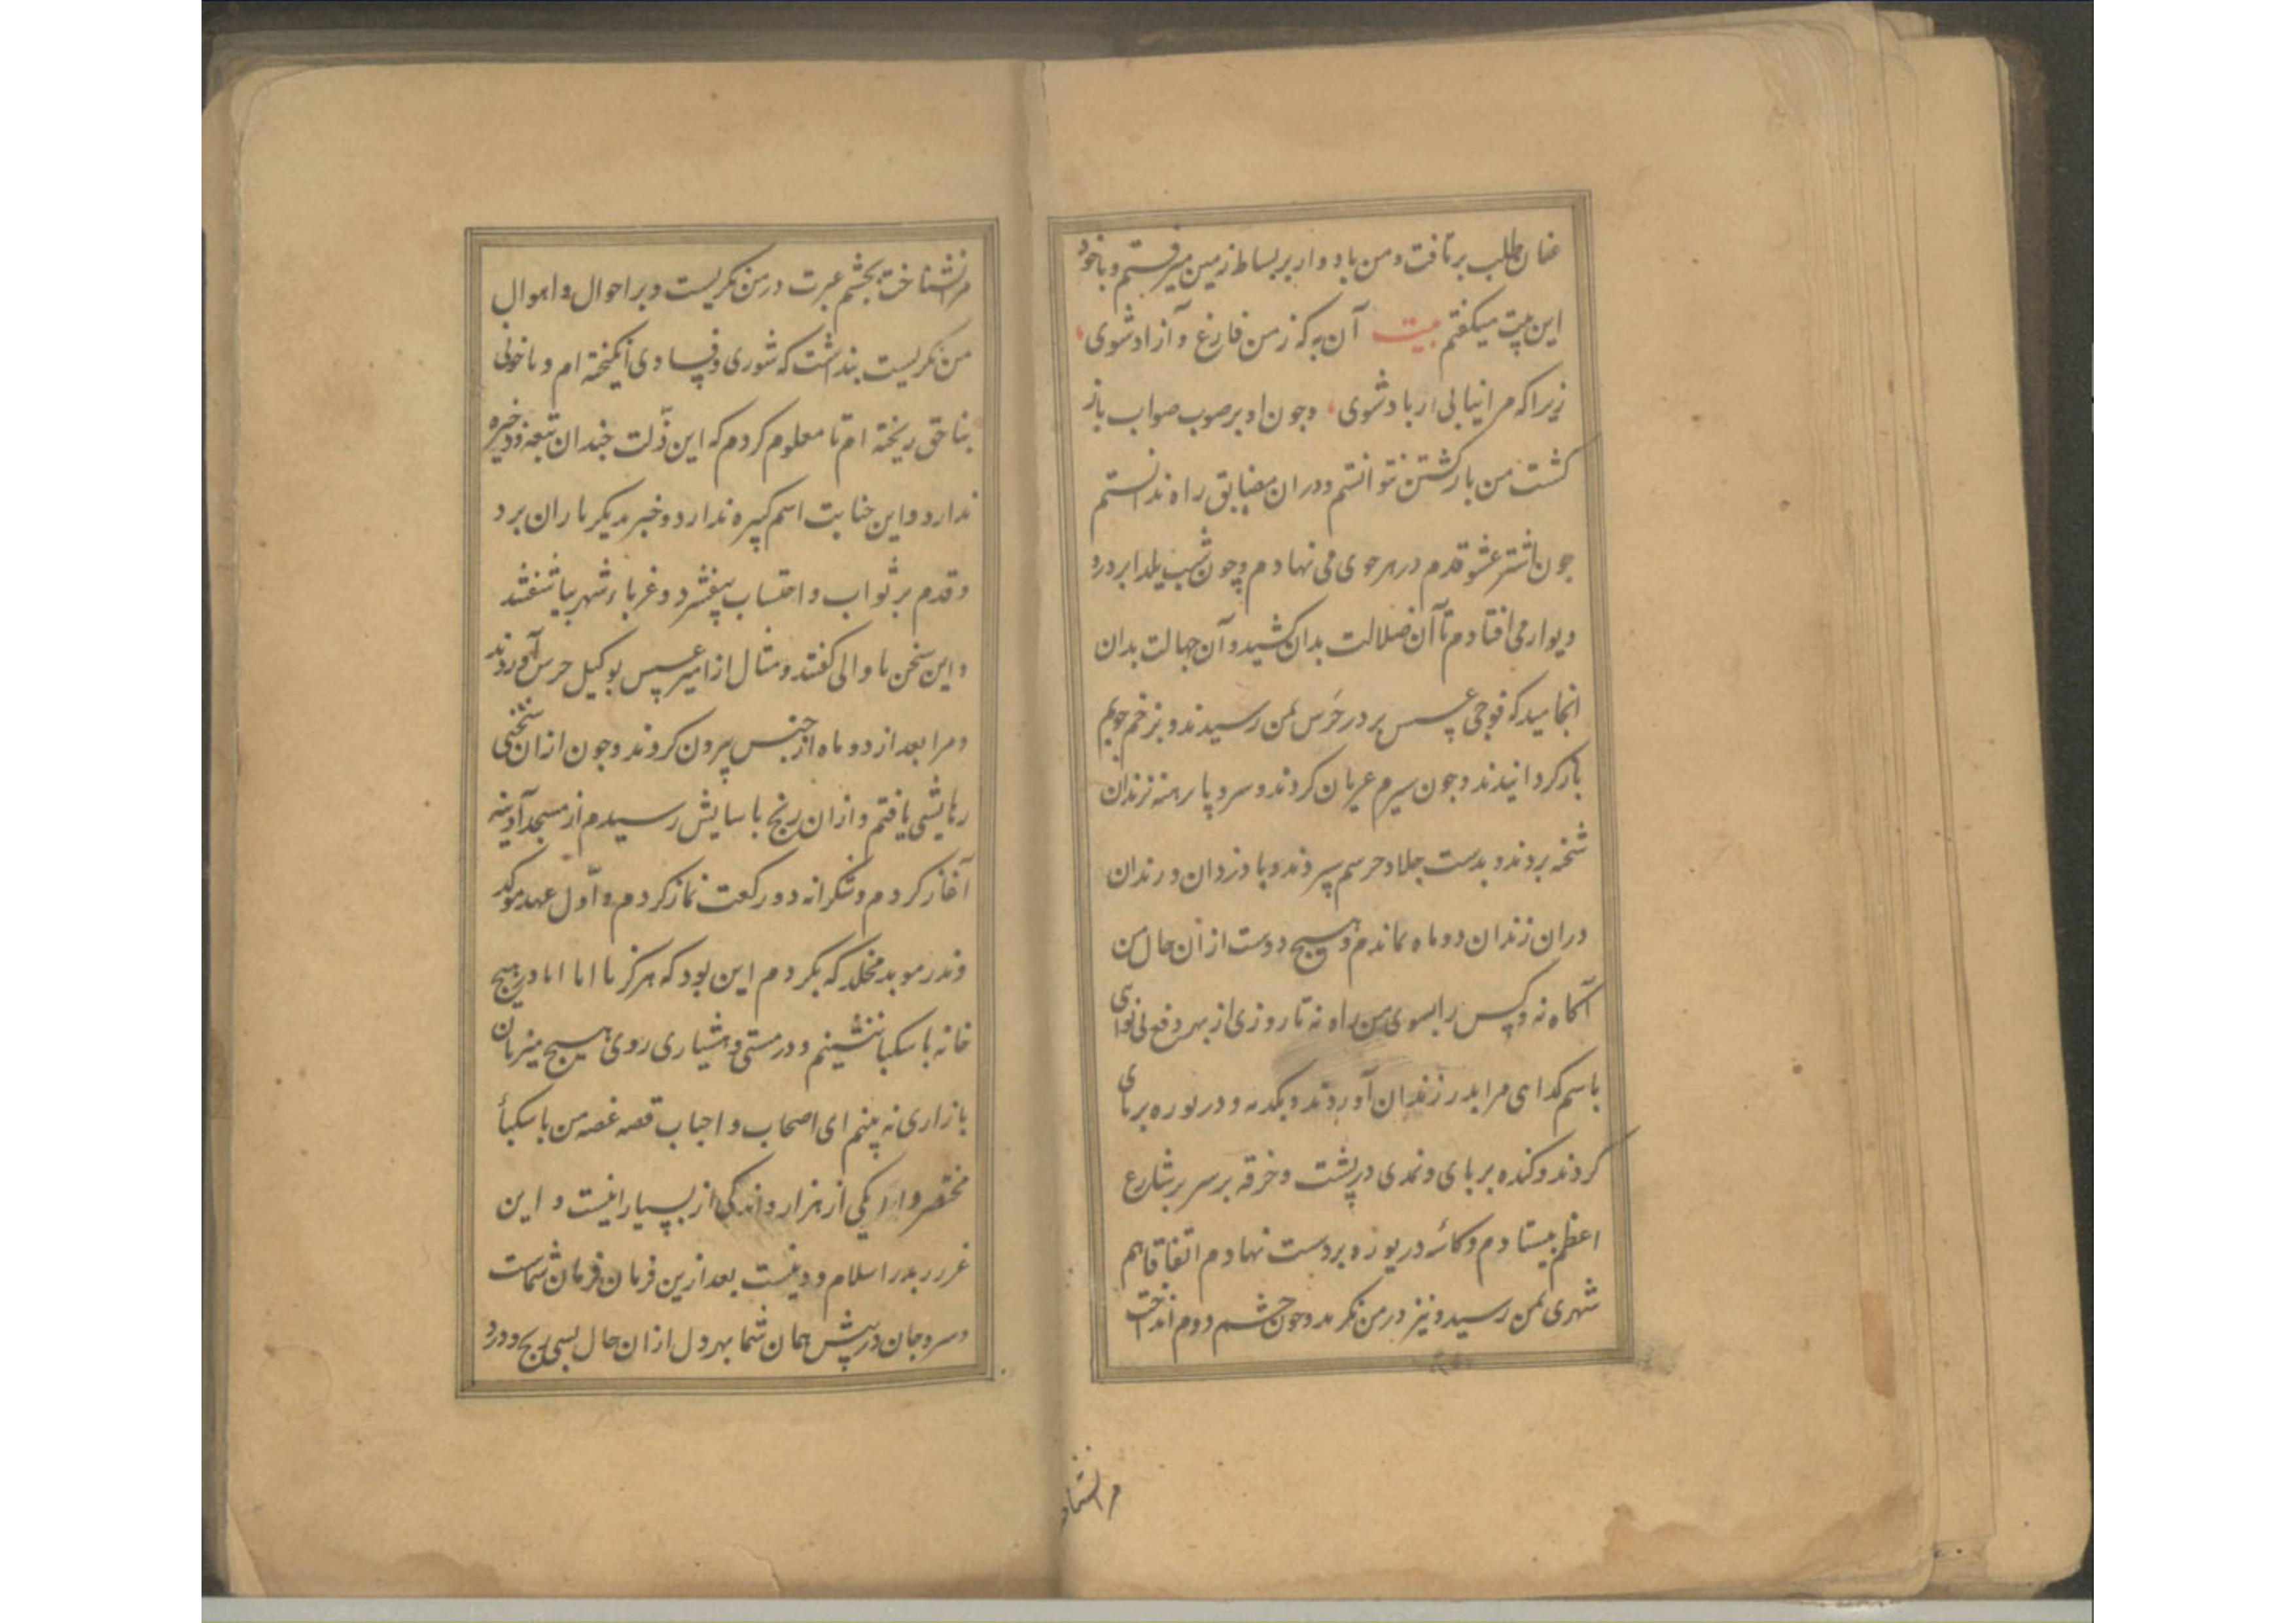 عنان طلب برتافت و من باد وار بر بساط زمین میرفتم و با خود
این بیت میکفتم بیت آن به که ز من فارغ و آزاد شوی
زیرا که مرا نیابی ار باد شوی وجون او بر صوب صواب باز
کشت من بازکشتن نتوانستم و دران مضایق راه ندانستم
جون اشتر عشو قدم در هر جوی می نهادم وچون شب یلدا بر در و
دیوار می افتادم تا آن ضلالت بدان کشید و آن جهالت بدان
انجامید که فوجی عسس بر در حَرَس بمن رسیدند و بزخم جوبم
باز کردانیدند وجون سیرم عریان کردند و سر و پا برهنه بزندان
شحنه بردند و بدست جلاد حرسم سپردند و با دزدان و رندان
دران زندان دو ماه بماندم و هیچ دوست از ان حال من
آکاه نه و کس را بسوی من راه نه تا روزی از بهر دفع بی نوایی
باسم کدایی مرا بدر زندان آوردند و بکدیه و دریوزه بر پای
کردند و کنده بر پای و نمدی در پشت و خرقه بر سر بر شارع
اعظم بیستادم و کاسۀ دریوزه بر دست نهادم اتفاقا هم
شهری بمن رسید و نیز در من نکرید وجون چشم دوم انداخت
مرا نشناخت
مرا نشناخت بچشم عبرت در من نکریست و بر احوال و اهوال
من نکریست بنداشت که شوری و فسادی انکیخته ام و یا خونی
بناحق ریخته ام تا معلوم کردم که این ذلت جندان تبعه و ذخیره
ندارد و این خیانت اسم کبیره ندارد و خبر بدیکر یاران برد
و قدم بر ثواب و احتساب بیفشرد و غرباء شهر بیاشفتند
و این سخن با والی کفتند و مثال از امیر عسس بوکیل حرس آوردند
و مرا بعد از دو ماه از حبس بیرون کردند وجون از ان سختی
رهایشی یافتم و از ان رنج باسایش رسیدم از مسجد آدینه
آغاز کردم و شکرانه دو رکعت نماز کردم و اوّل عهد موکد
و نذر موبد مخلد که بکردم این بود که هرکز با ابا اما در هیچ
خانه با سکبا ننشینم و در مستی و هشیاری روی هیچ میزبان
بازاری نه بینم ای اصحاب و احباب قصه غصه من با سکبا
مختصر وار یکی از هزار و اندکی از بسیار اینست و این
غرر بدر اسلام و دینست بعد ازین فرمان فرمان شماست
و سر و جان در پیش همان شما بهر دل از ان حال بسی رنج و درد